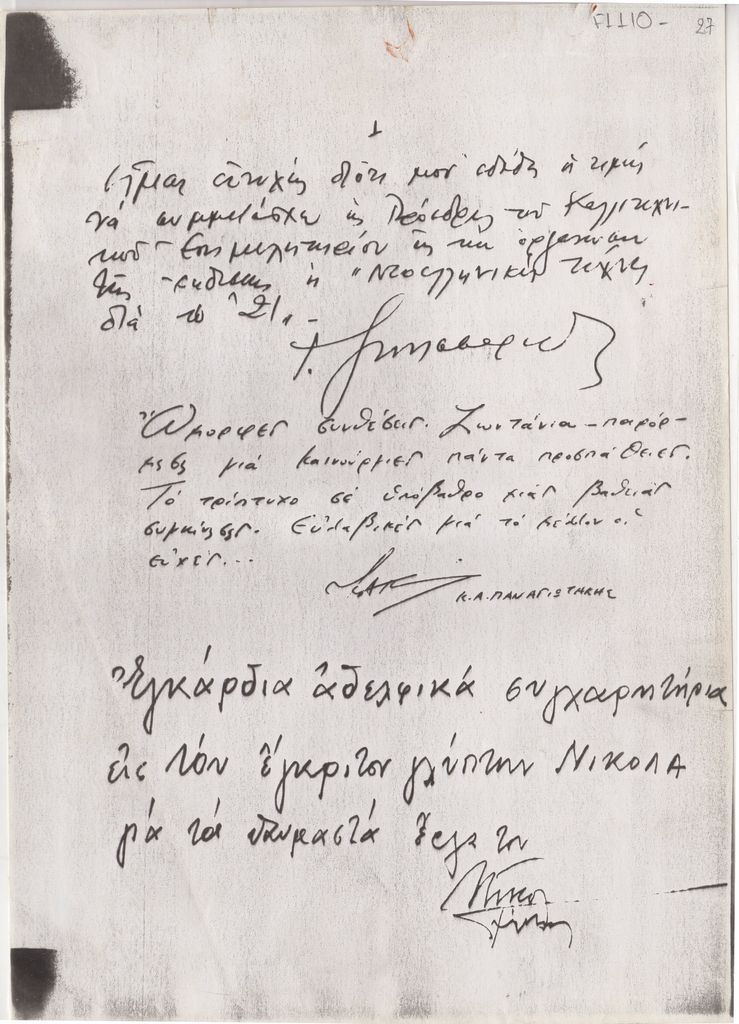 F1110 - 27
1
Εἶμαι εὐτυχής διότι μου ἐδόθη ἡ τιμή
νά συμμετάσχω ὡς Πρόεδρος του Καλλιτεχνι-
κού Επιμελητηρίου εἰς την οργάνωσιν
τῆς εκθέσεως ἡ "Νεοελληνική τέχνη
διά το '21„.-
Ὄμορφες συνθέσεις. Ζωντάνια - παρόρ-
μηση γιά καινούργιες πάντα προσπάθειες.
Τό τρίπτυχο σέ ὑπόβαθρο μιᾶς βαθειᾶς
συγκίνησης. Εὐλαβικές γιά τό μέλλον οἱ
εὐχές...
Κ.Α. ΠΑΝΑΓΙΩΤΑΚΗΣ
Ἐγκάρδια ἀδελφικά συγχαρητήρια
εἰς τόν ἔγκριτον γλύπτην ΝΙΚΟΛΑ
γιά τά θαυμαστά ἔργα του
Νίκος